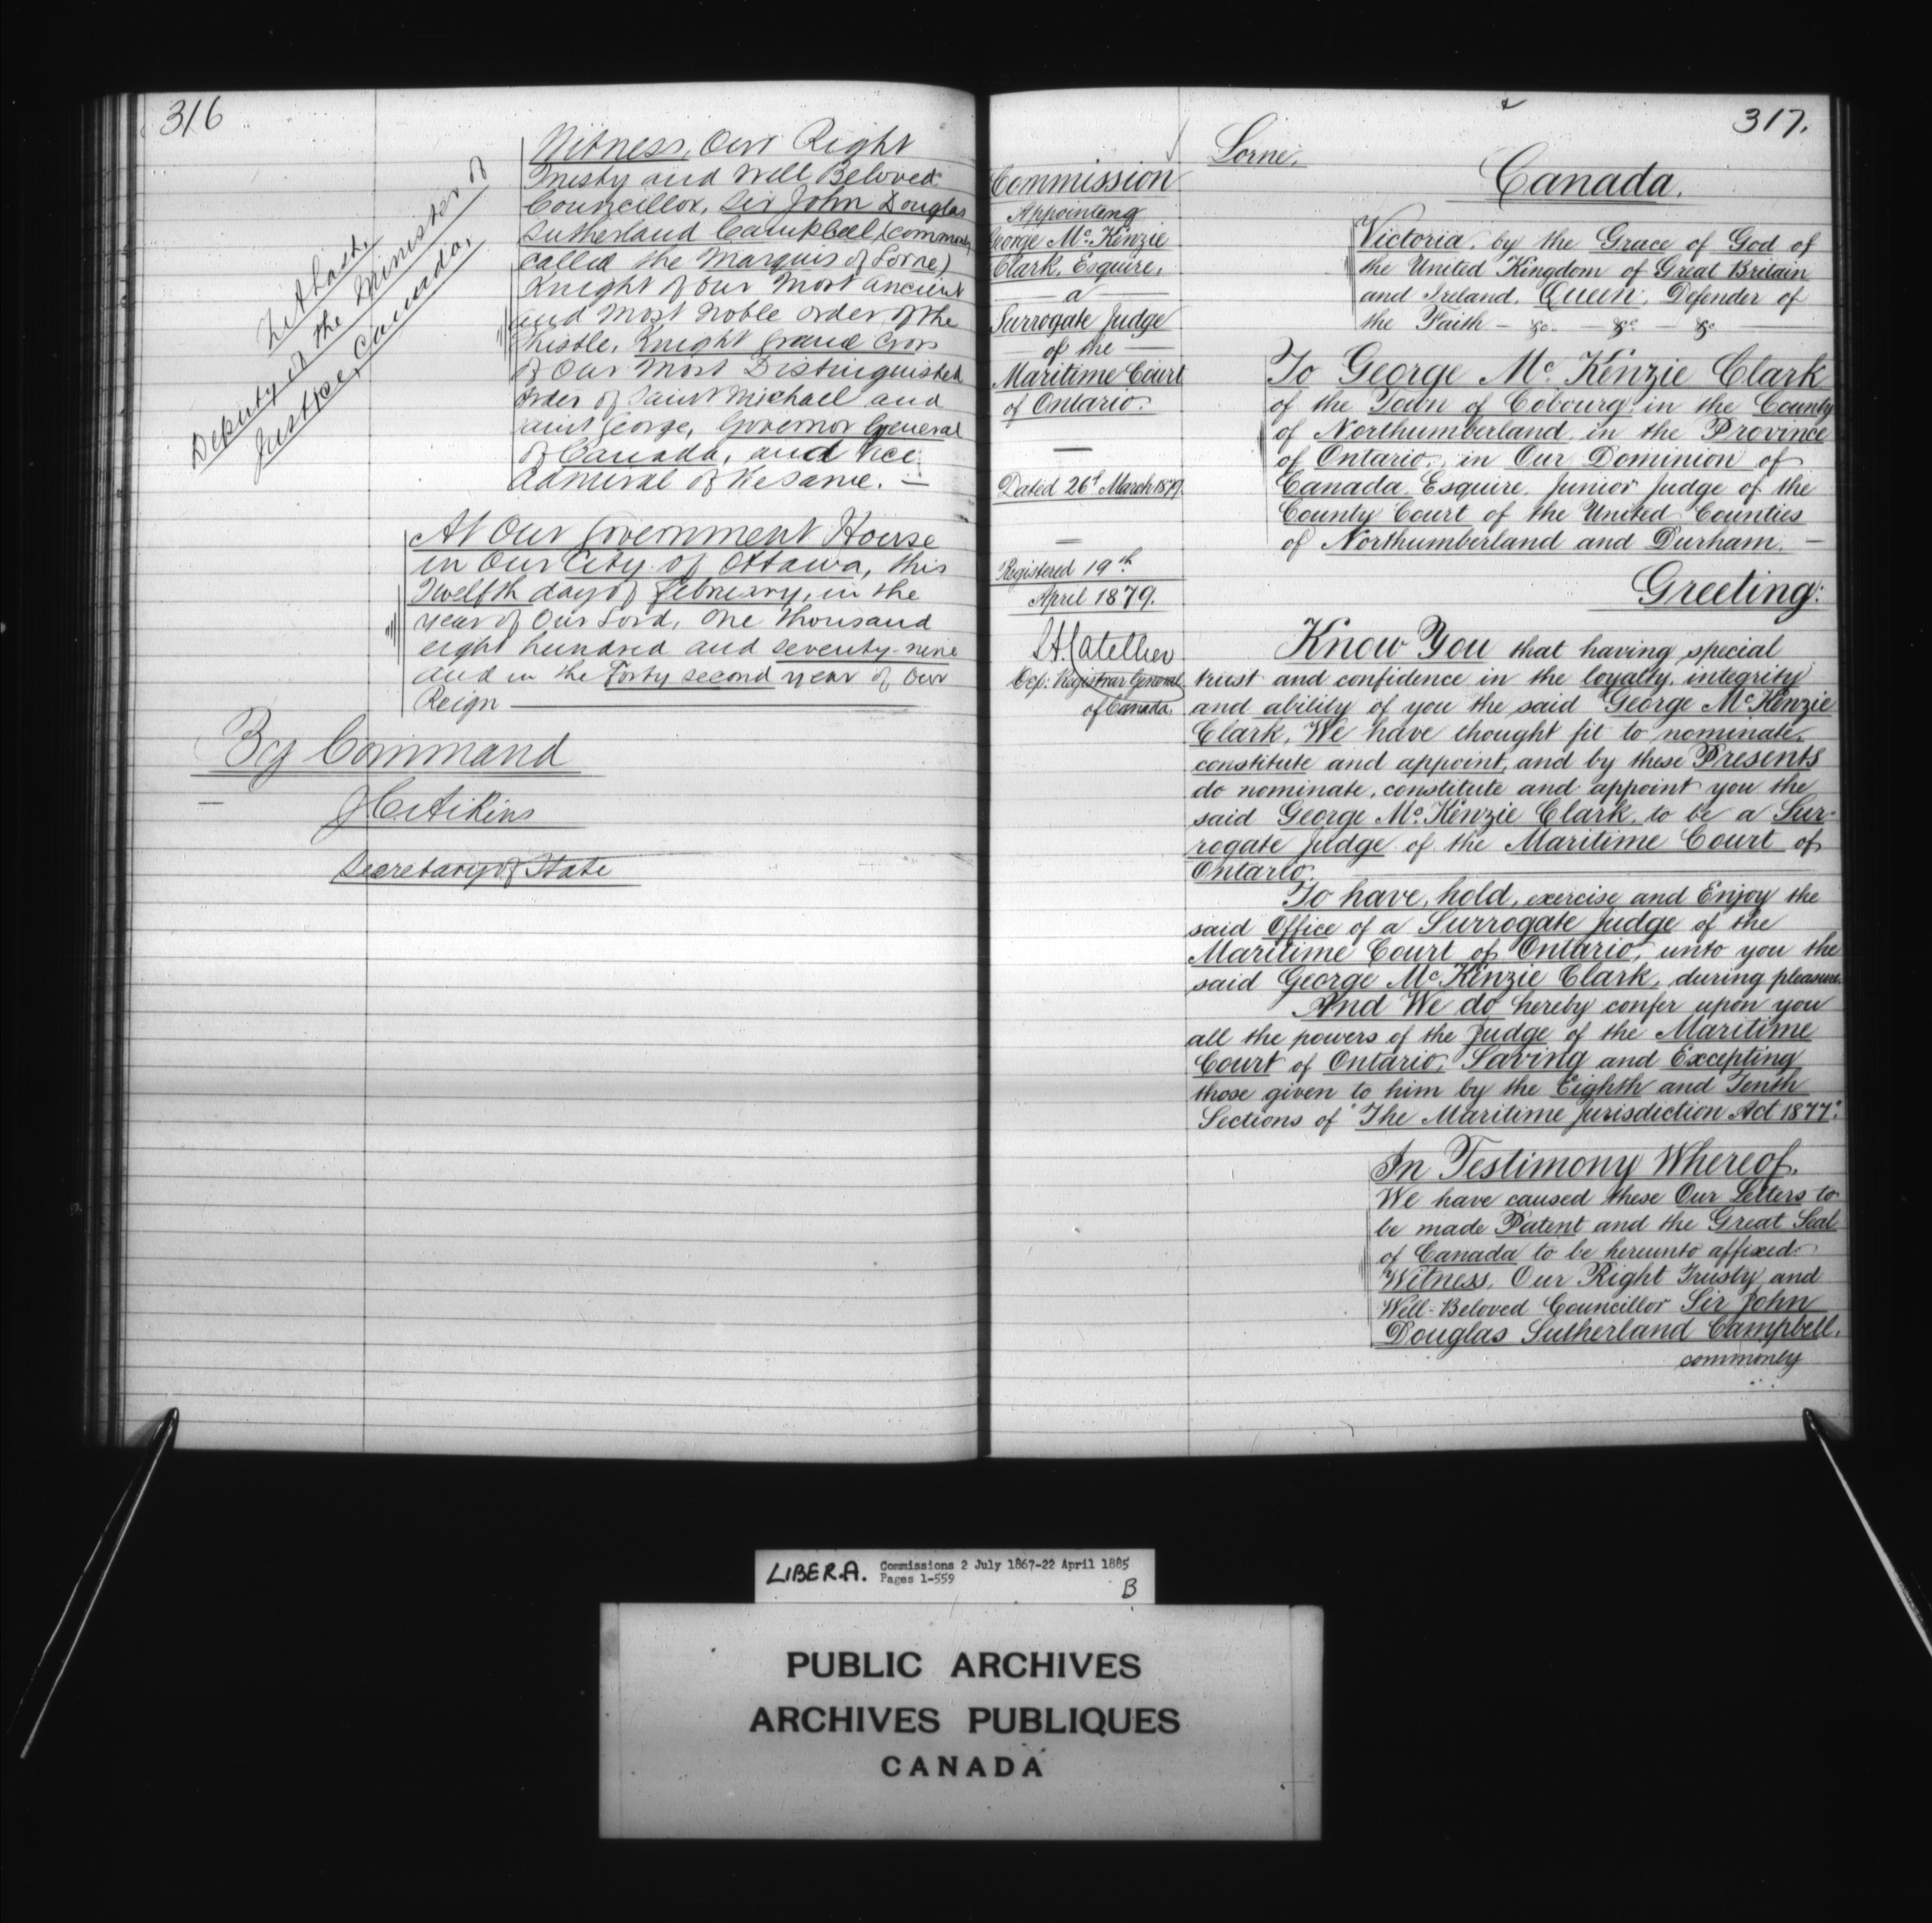 316
Witness, Our Right
Trusty and Well Beloved
Councillor, Sir John Douglas
Sutherland Campbell (commonly
called the Marquis of Lorne)
Knight of Our Most Ancient
and Most Noble Order of the
Thistle, Knight Grand Cross
of Our Most Distinguished
Order of Saint Michael and
aint George, Governor General
of Canada, and Vice
Admiral of the Same. —
Z A Lash,
Deputy of the Minister of
Justice, Canada.
At Our Government House
in Our City of Ottawa, this
Twelfth day of February, in the
year of Our Lord, One thousand
eight hundred and seventy-nine
and in the Forty second year of Our
Reign
By Command
J C Aikins
Secretary of State
317.
Lorne.
Canada.
Commission
Appointing
George Mc. Kenzie
Clark, Esquire,
a
Surrogate Judge
of the
Maritime Court
of Ontario.
Dated 26th March 1879.
Registered 19th
April 1879.
Dep: Registrar General
of Canada.
Victoria, by the Grace of God of
the United Kingdom of Great Britain
and Ireland, Queen, Defender of
the Faith — &c. — &c — &c
To George Mc. Kenzie Clark
of the Town of Cobourg in the County
of Northumberland in the Province
of Ontario, in Our Dominion of
Canada, Esquire, Junior Judge of the
County Court of the United Counties
of Northumberland and Durham. —
Greeting:
Know You that having special
trust and confidence in the loyalty, integrity
and ability of you the said George Mc Kenzie
Clark, We have thought fit to nominate,
constitute and appoint, and by these Presents
do nominate, constitute and appoint you the
said George Mc. Kenzie Clark, to be a Sur-
rogate Judge of the Maritime Court of
Ontario.
To have, hold, exercise and Enjoy the
said Office of a Surrogate Judge of the
Maritime Court of Ontario, unto you the
said George Mc Kenzie Clark, during pleasure.
And We do hereby confer upon you
all the powers of the Judge of the Maritime
Court of Ontario, Saving and Excepting
those given to him by the Eighth and Tenth
Sections of "The Maritime Jurisdiction Act 1877".
In Testimony Whereof,
We have caused these Our Letters to
be made Patent and the Great Seal
of Canada to be hereunto affixed.
Witness, Our Right Trusty and
Well-Beloved Councillor Sir John
Douglas Sutherland Campbell,
commonly
LIBER.A. Commissions 2 July 1867-22 April 1885
Pages 1-559
B
PUBLIC ARCHIVES
ARCHIVES PUBLIQUES
CANADA